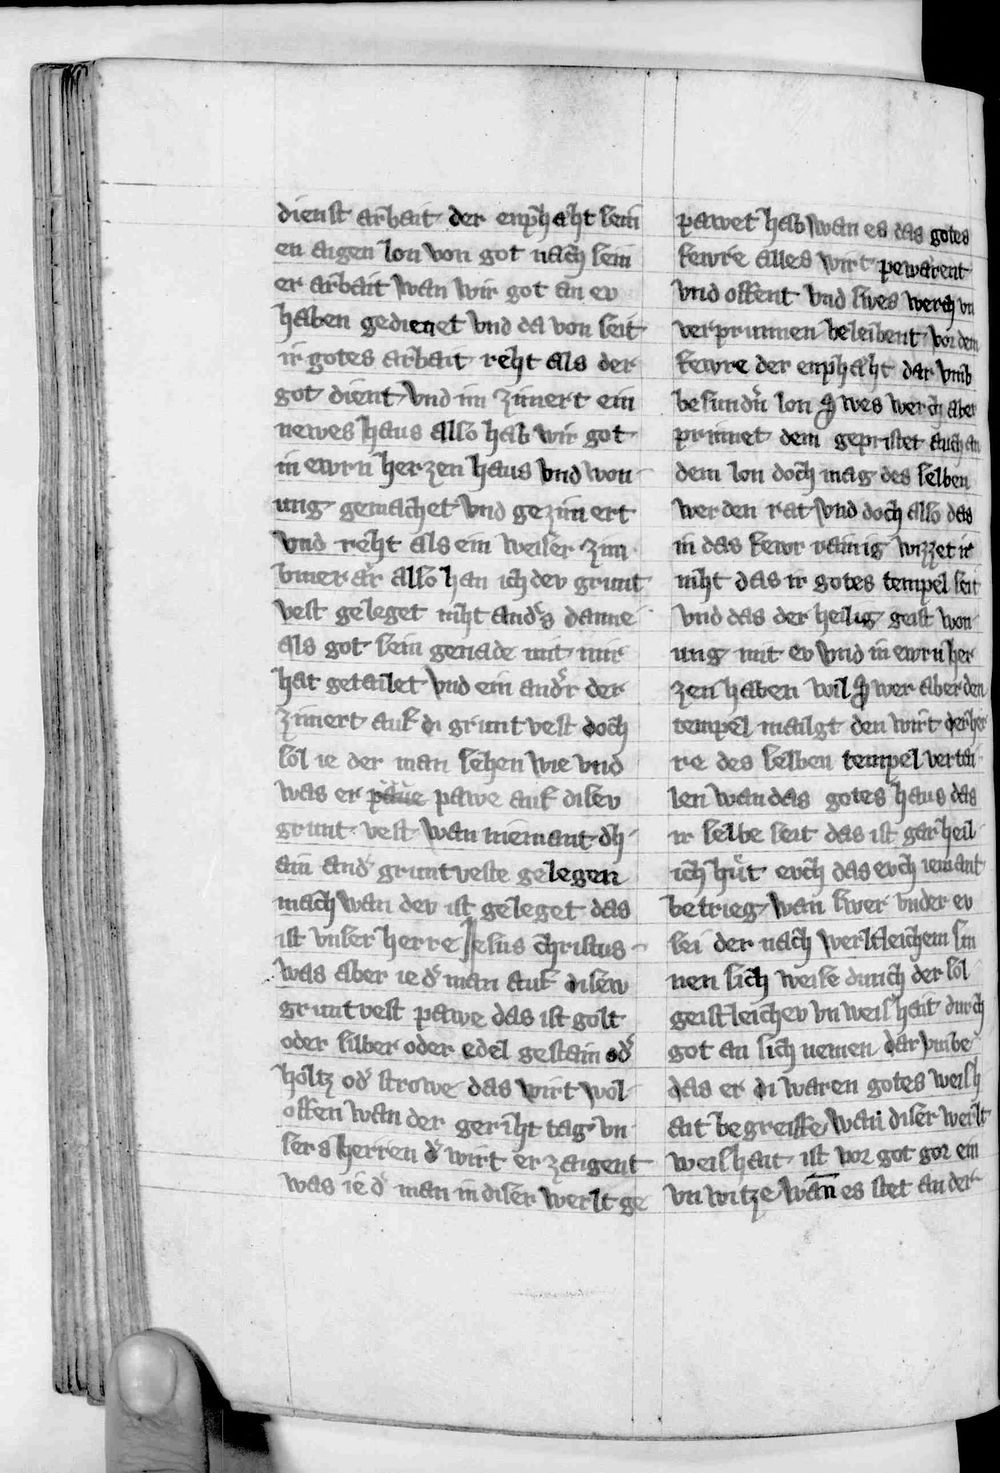 dienst arbait der enphaht sein
en aigen lon von got nach sein
er arbait wan wir got an ev
haben gedienet vnd da von seit
ir gotes arbait reht als der
got dient vnd im zimert ein
newes haus also hab wir got
in ewrn herzen haus vnd won
ung gemachet vnd gezimert
vnd reht als ein weiser zim
vmerar also han ich dev grunt
vest geleget niht anders danne
als got sein genade mit mir
hat getailet vnd ein andr der
zimert auf di grunt vest doch
sol ie der man sehen wie vnd
was er pawe auf disev
grunt vest wan niemant dh
ain and grunt veste gelegen
mach wan dev ist geleget das
ist vnser herre Jesus christus
was aber ie d man auf disew
grunt vest pawe das ist golt
oder silber oder edel gestain od
holtz od strowe das wirt wol
offen wan der geriht tag vn
sers herren d wirt erzaigent
was ie d man in diser werlt ge
pawet hab wan es das gotes
fewre alles wirt pewarent
vnd offent vnd swes werch vn
verprunnen beleibent vor dem
fewre der enphaht dar vmb
besundn lon wes werch aber
prinnet dem gepristet auch an
dem lon doch mag des selben
werden rat vnd doch also das
in das fewr rainig wizzet ir
niht das ir gotes tempel seit
vnd das der heilig geist won
ung mit ev vnd in ewrn her
zen haben wil wer aber den
tempel mailgt den wirt der her
re des selben tempel vertai
len wan das gotes haus das
ir selbe seit das ist gar heil
ich hut evch das evch iemant
betrieg wan swer vnder ev
sei der nach werltleichem sin
nen sich weise dunch der sol
geistleichev vn weishait durch
got an sich nemen dar vmbe
das er di waren gotes weish
ait begreiffe wan diser werlt
weishait ist vor got gor ein
vn witze wan es stet an der